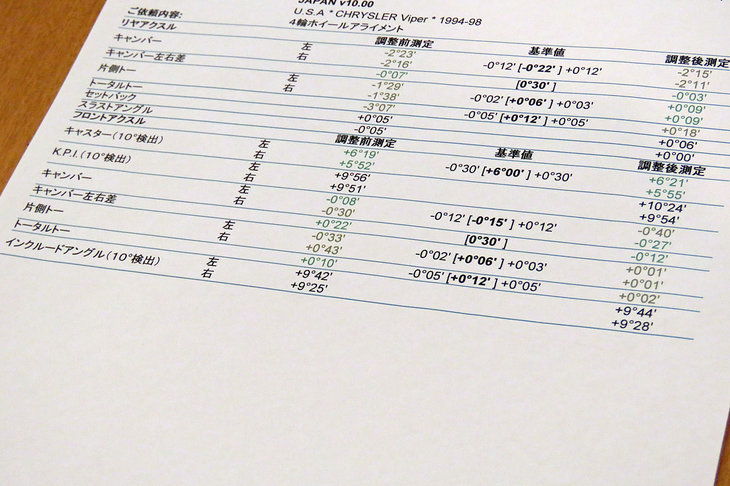 JAPAN v10.00
ご依頼内容: U.S.A * CHRYSLER Viper * 1994-98
4輪ホイールアライメント
リヤアクスル 調整前測定 基準値 調整後測定
キャンバー 左 -2°23' -0°12' [-0°22' ] +0°12' -2°15'
右 -2°16' -2°11'
キャンバー左右差 -0°07' [0°30' ] -0°03'
片側トー 左 -1°29' -0°02' [+0°06' ] +0°03' +0°09'
右 -1°38' +0°09'
トータルトー -3°07' -0°05' [+0°12' ] +0°05' +0°18'
セットバック +0°05' +0°06'
スラストアングル -0°05' +0°00'
フロントアクスル 調整前測定 基準値 調整後測定
キャスター(10°検出) 左 +6°19' -0°30' [+6°00' ] +0°30' +6°21'
右 +5°52' +5°55'
K.P.I.(10°検出) 左 +9°56' +10°24'
右 +9°51' +9°54'
キャンバー 左 -0°08' -0°12' [-0°15' ] +0°12' -0°40'
右 -0°30' -0°27'
キャンバー左右差 +0°22' [0°30' ] -0°12'
片側トー 左 -0°33' -0°02' [+0°06' ] +0°03' +0°01'
右 +0°43' +0°01'
トータルトー +0°10' -0°05' [+0°12' ] +0°05' +0°02'
インクルードアングル(10°検出) 左 +9°42' +9°44'
右 +9°25' +9°28'